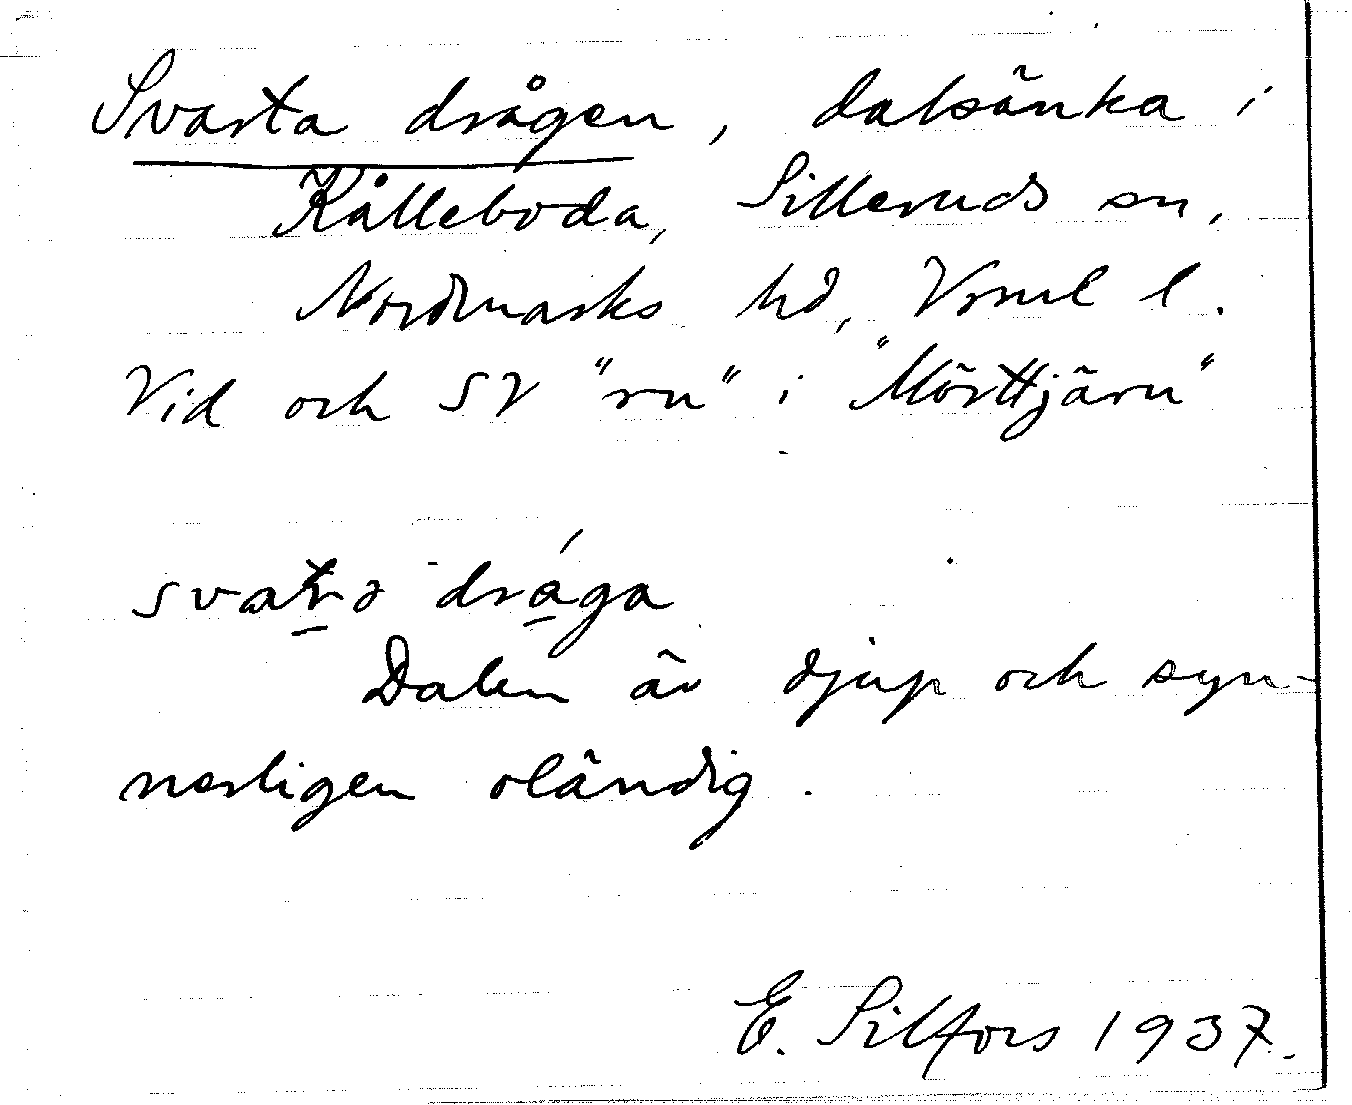 Svarta drågen, dalsänka i
Kålleboda, Silleruds sn,
Nordmarks hd, Vrml l.
Vid och SV "rn" i "Mörttjärn"
dråga
Dalen är djup och syn-
nerligen oländig.
E. Silfors 1937.